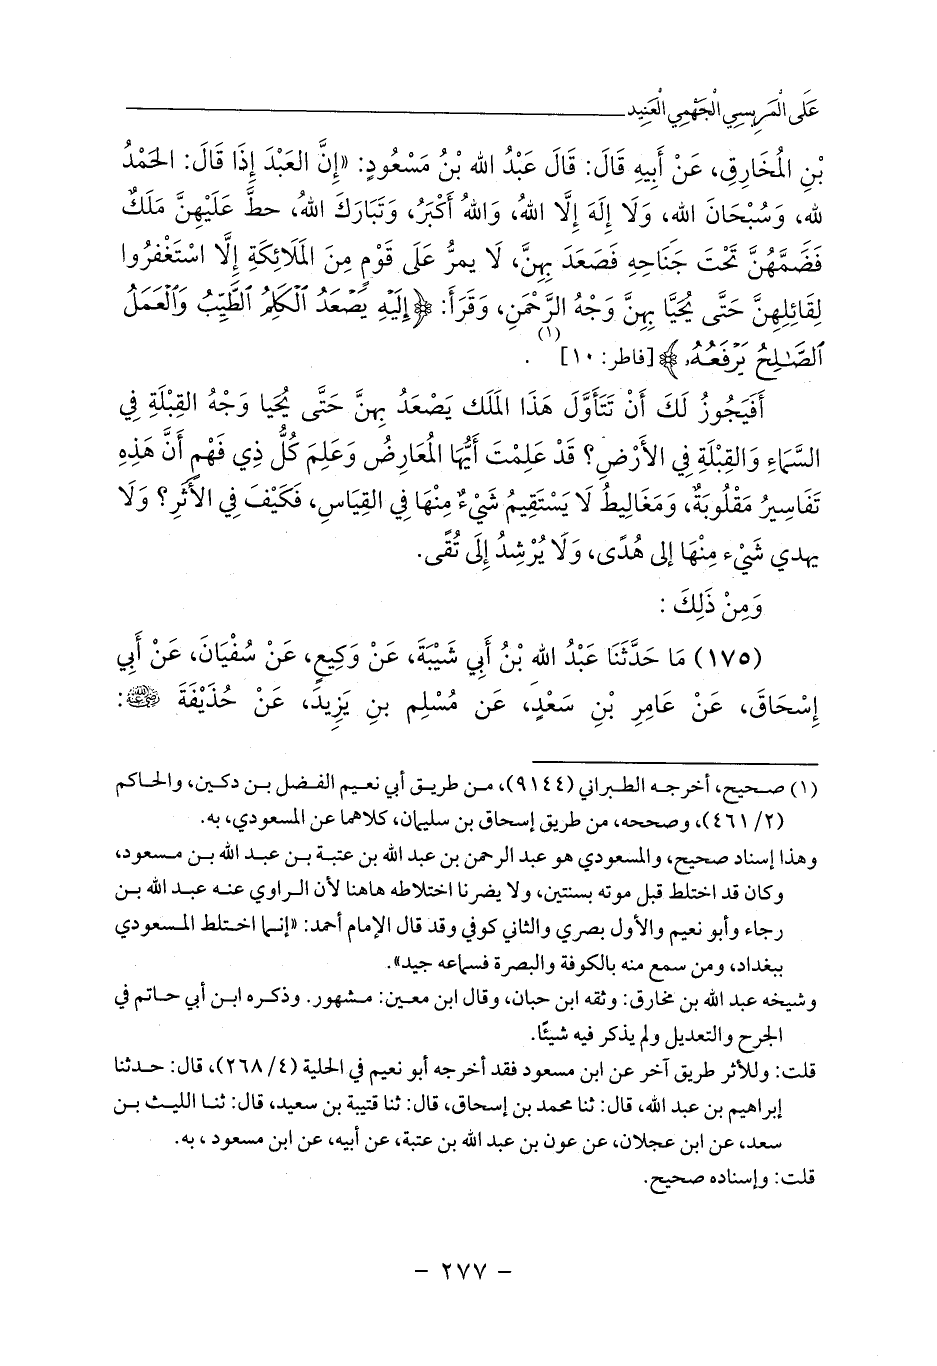 عَلَى الْمَرِيسِي الْجَهْمِي الْعَنِيد
بْنِ الْمُخَارِقِ، عَنْ أَبِيهِ قَالَ: قَالَ عَبْدُ الله بْنُ مَسْعُودٍ: «إِنَّ العَبْدَ إِذَا قَالَ: الحَمْدُ
لله، وَسُبْحَانَ الله، وَلَا إِلَهَ إِلَّا اللهُ، وَاللهُ أَكْبَرُ، وَتَبَارَكَ اللهُ، حطَّ عَلَيْهِنَّ مَلَكٌ
فَضَمَّهُنَّ تَحْتَ جَنَاحِهِ فَصَعَدَ بِهِنَّ، لَا يمرُّ عَلَى قَوْمٍ مِنَ المَلَائِكَةِ إِلَّا اسْتَغْفَرُوا
لِقَائِلِهِنَّ حَتَّى يُحَيَّا بِهِنَّ وَجْهُ الرَّحْمَنِ، وَقَرَأَ: ﴿إِلَيْهِ يَصْعَدُ ٱلْكَلِمُ ٱلطَّيِّبُ وَٱلْعَمَلُ
ٱلصَّٰلِحُ يَرْفَعُهُۥ﴾ [فاطر: ١٠] (١) .
أَفَيَجُوزُ لَكَ أَنْ تَتَأَوَّلَ هَذَا المَلَك يَصْعَدُ بِهِنَّ حَتَّى يُحَيا وَجْهُ القِبْلَةِ فِي
السَّمَاءِ وَالقِبْلَةِ فِي الأَرْضِ؟ قَدْ عَلِمْتَ أَيُّهَا المُعَارِضُ وَعَلِمَ كُلُّ ذِي فَهْمٍ أَنَّ هَذِهِ
تَفَاسِيرُ مَقْلُوبَةٌ، وَمَغَالِيطُ لَا يَسْتَقِيمُ شَيْءٌ مِنْهَا فِي القِيَاسِ، فَكَيْفَ فِي الأَثَرِ؟ وَلَا
يهدي شَيْء مِنْهَا إلى هُدًى، وَلَا يُرْشِدُ إِلَى تُقًى.
وَمِنْ ذَلِكَ :
(١٧٥) مَا حَدَّثَنَا عَبْدُ الله بْنُ أَبِي شَيْبَةَ، عَنْ وَكِيعٍ، عَنْ سُفْيَانَ، عَنْ أَبِي
إِسْحَاقَ، عَنْ عَامِرِ بْنِ سَعْدٍ، عَن مُسْلِمِ بنِ يَزِيدَ، عَنْ حُذَيْفَةَ ﵁:
(١) صحيح، أخرجه الطبراني (٩١٤٤)، من طريق أبي نعيم الفضل بن دكين، والحاكم
(٢/ ٤٦١)، وصححه، من طريق إسحاق بن سليمان، كلاهما عن المسعودي، به.
وهذا إسناد صحيح، والمسعودي هو عبد الرحمن بن عبد الله بن عتبة بن عبد الله بن مسعود،
وكان قد اختلط قبل موته بسنتين، ولا يضرنا اختلاطه هاهنا لأن الراوي عنه عبد الله بن
رجاء وأبو نعيم والأول بصري والثاني كوفي وقد قال الإمام أحمد: «إنما اختلط المسعودي
ببغداد، ومن سمع منه بالكوفة والبصرة فسماعه جيد».
وشيخه عبد الله بن مخارق: وثقه ابن حبان، وقال ابن معين: مشهور. وذكره ابن أبي حاتم في
الجرح والتعديل ولم يذكر فيه شيئًا.
قلت: وللأثر طريق آخر عن ابن مسعود فقد أخرجه أبو نعيم في الحلية (٤/ ٢٦٨)، قال: حدثنا
إبراهيم بن عبد الله، قال: ثنا محمد بن إسحاق، قال: ثنا قتيبة بن سعيد، قال: ثنا الليث بن
سعد، عن ابن عجلان، عن عون بن عبد الله بن عتبة، عن أبيه، عن ابن مسعود ، به.
قلت: وإسناده صحيح.
- ٢٧٧ -